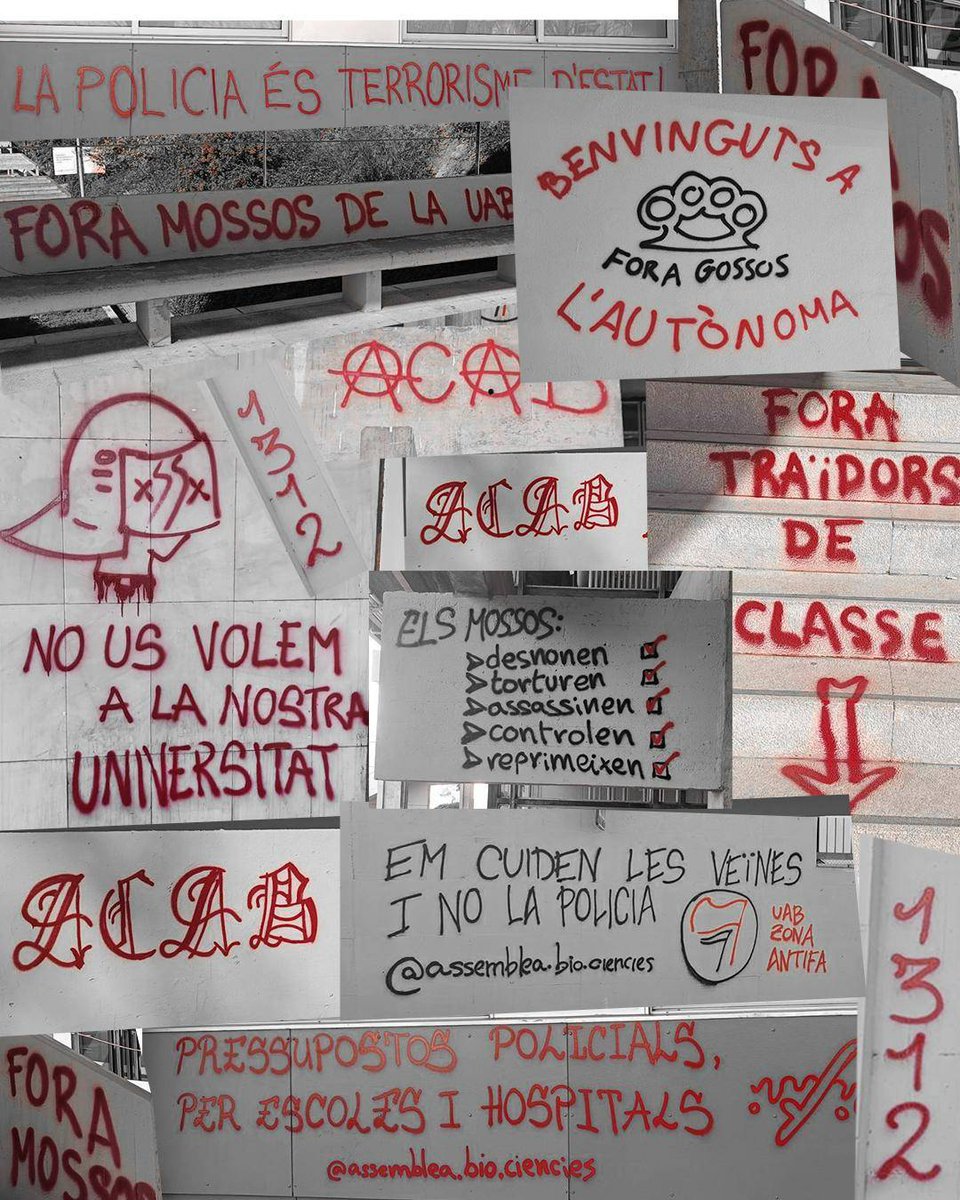 LA POLICIA ÉS TERRORISME D'ESTAT!
FORA MOSSOS DE LA UAB
FORA
BENVINGUTS A
FORA GOSSOS
L'AUTÒNOMA
ACAB
1312
ACAB
FORA
TRAÏDORS
DE
CLASSE
NO US VOLEM
A LA NOSTRA
UNIVERSITAT
ELS MOSSOS:
desnonen
torturen
assassinen
controlen
reprimeixen
ACAB
EM CUIDEN LES VEÏNES
I NO LA POLICIA
@assemblea.bio.ciencies
UAB
ZONA
ANTIFA
1312
PRESSUPOSTOS POLICIALS,
PER ESCOLES I HOSPITALS
@assemblea.bio.ciencies
FORA
MOSSOS